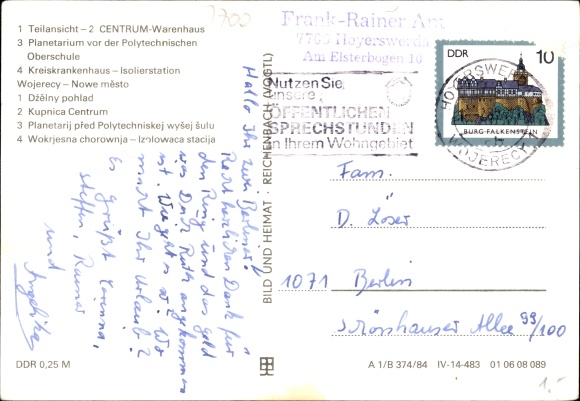 1 Teilansicht – 2 CENTRUM-Warenhaus
3 Planetarium vor der Polytechnischen
Oberschule
4 Kreiskrankenhaus – Isolierstation
Wojerecy – Nowe město
1 Dźělny pohlad
2 Kupnica Centrum
3 Planetarij před Polytechniskej wyšej šulu
4 Wokrjesna chorownja – Izolowaca stacija
7700
Frank-Rainer
Hoyerswerda
Am Elsterbogen 10
Nutzen Sie
unsere
ÖFFENTLICHEN
SPRECHSTUNDEN
in Ihrem Wohngebiet
HOYERSWERDA
WOJERECY
DDR 10
BURG FALKENSTEIN
Hallo Ihr zwei Berliner!
Recht herzlichen Dank für
den Ring und das Geld
was Dein angekommen
ist. Wie geht es so? Wo
macht Ihr Urlaub?
Es grüßt Corinna,
Steffen, Rainer
und
Angelika
BILD UND HEIMAT · REICHENBACH (VOGTL)
Fam.
D. Löser
1071 Berlin
Schönhauser Allee 99/100
DDR 0,25 M
A 1/B 374/84 IV-14-483 01 06 08 089
1.-